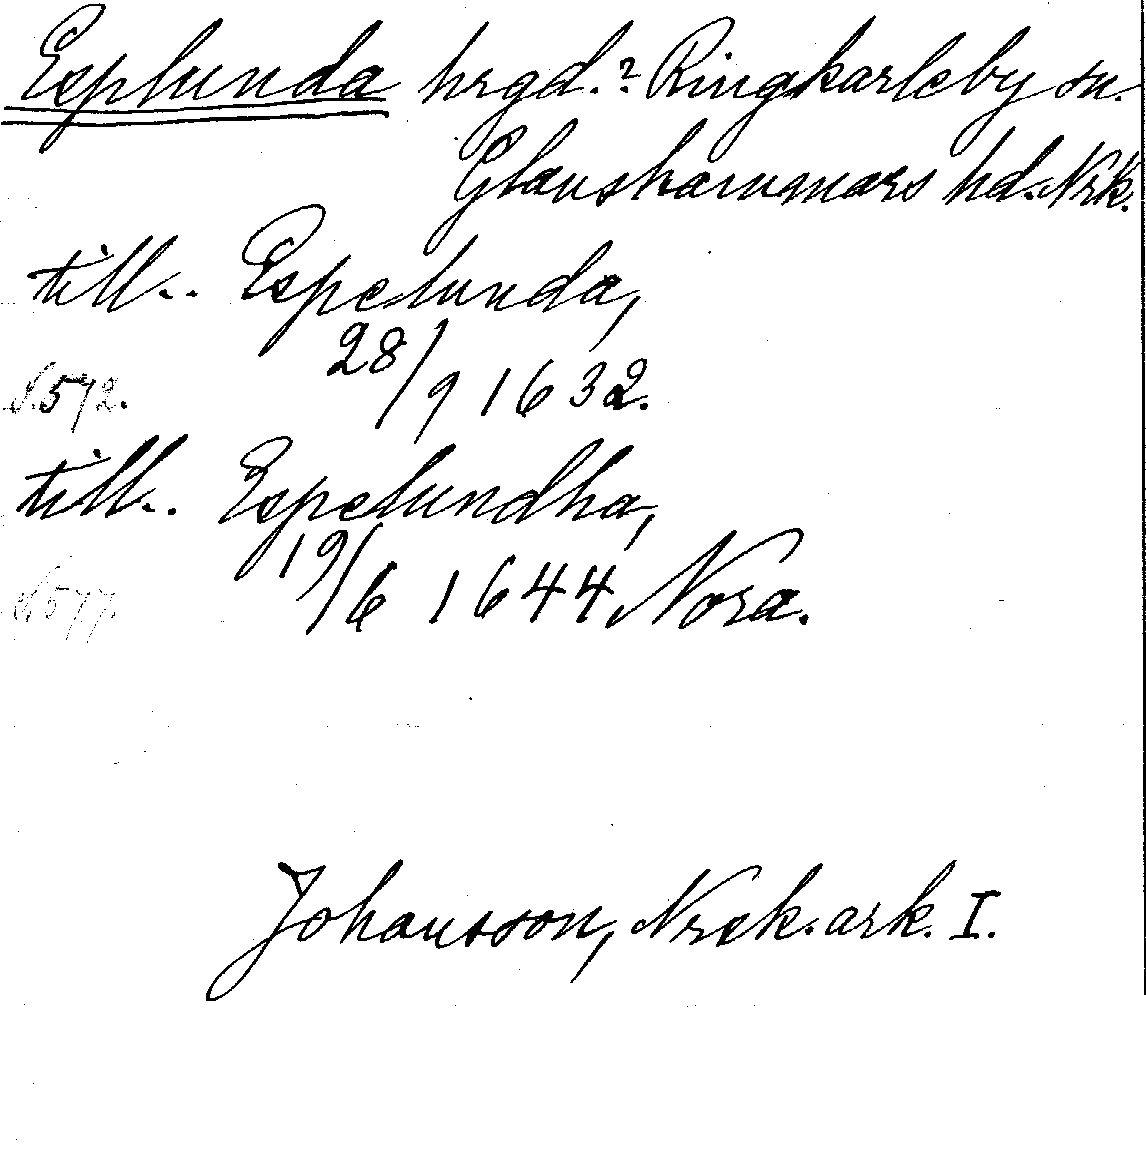 Esplunda hrgd.? Ringkarleby sn.
Glanshammars hd. Nrk.
till.. Espelunda,
28/9 1632.
S. 572.
till.. Espelundha,
19/6 1644 Nora.
S. 577.
Johansson, Nrck. ark. I.